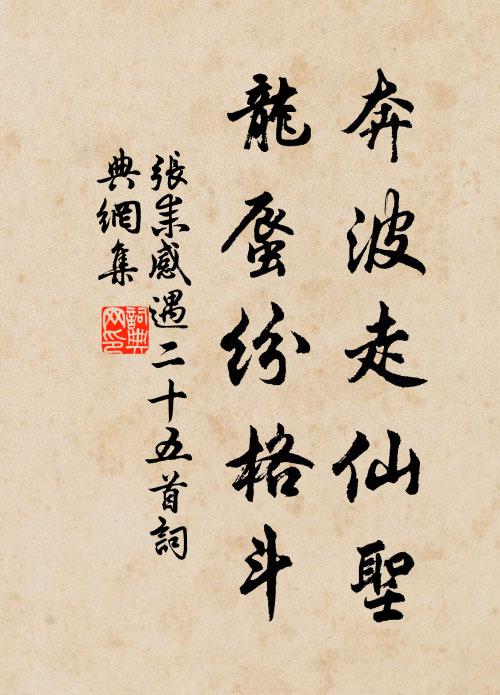 奔波走仙聖
龍蜃纷格斗
張耒感遇二十五首詞
典網集
詞典网印